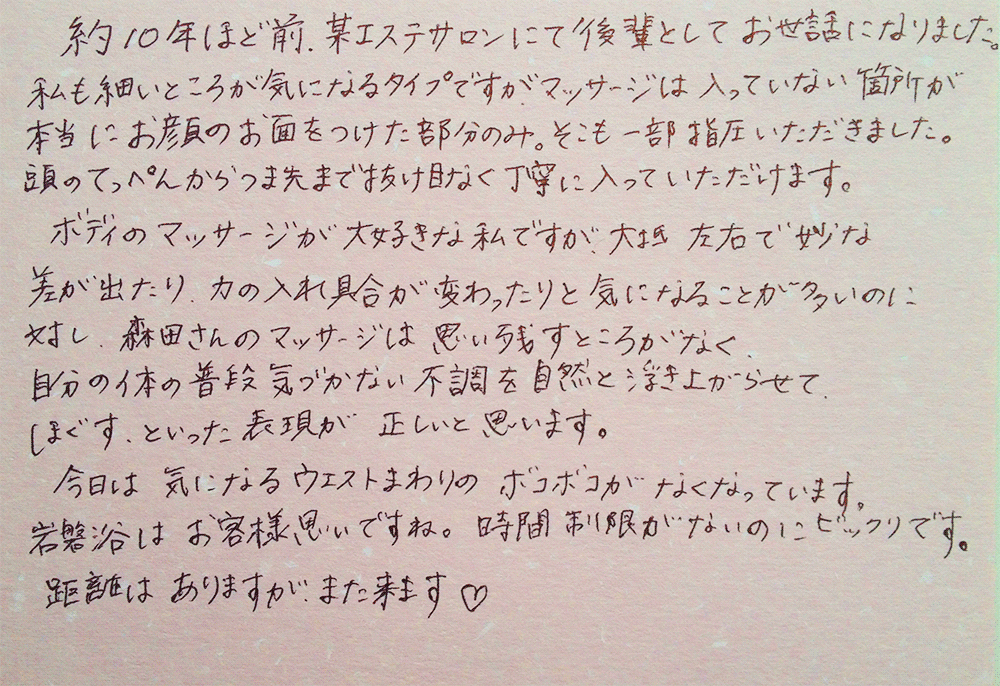 約10年ほど前、某エステサロンにて後輩としてお世話になりました。
私も細いところが気になるタイプですが、マッサージは入っていない箇所が
本当にお顔のお面をつけた部分のみ。そこも一部指圧いただきました。
頭のてっぺんからつま先まで抜け目なく丁寧に入っていただけます。
ボディのマッサージが大好きな私ですが、大抵左右で妙な
差が出たり、力の入れ具合が変わったりと気になることが多いのに
対し、森田さんのマッサージは思い残すところがなく、
自分の体の普段気づかない不調を自然と浮き上がらせて、
ほぐす、といった表現が正しいと思います。
今日は気になるウエストまわりのボコボコがなくなっています。
岩盤浴はお客様思いですね。時間制限がないのにビックリです。
距離はありますが、また来ます♡